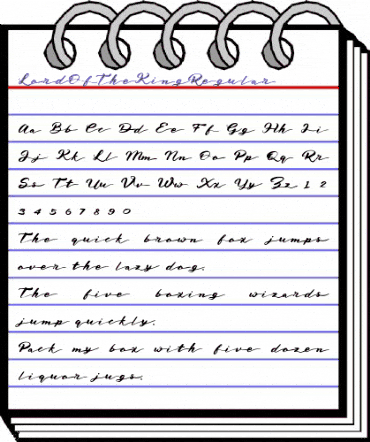 LordOfTheKingRegular
Aa Bb Cc Dd Ee Ff Gg Hh Ii
Jj Kk Ll Mm Nn Oo Pp Qq Rr
Ss Tt Uu Vv Ww Xx Yy Zz 1 2
3 4 5 6 7 8 9 0
The quick brown fox jumps
over the lazy dog.
The five boxing wizards
jump quickly.
Pack my box with five dozen
liquor jugs.